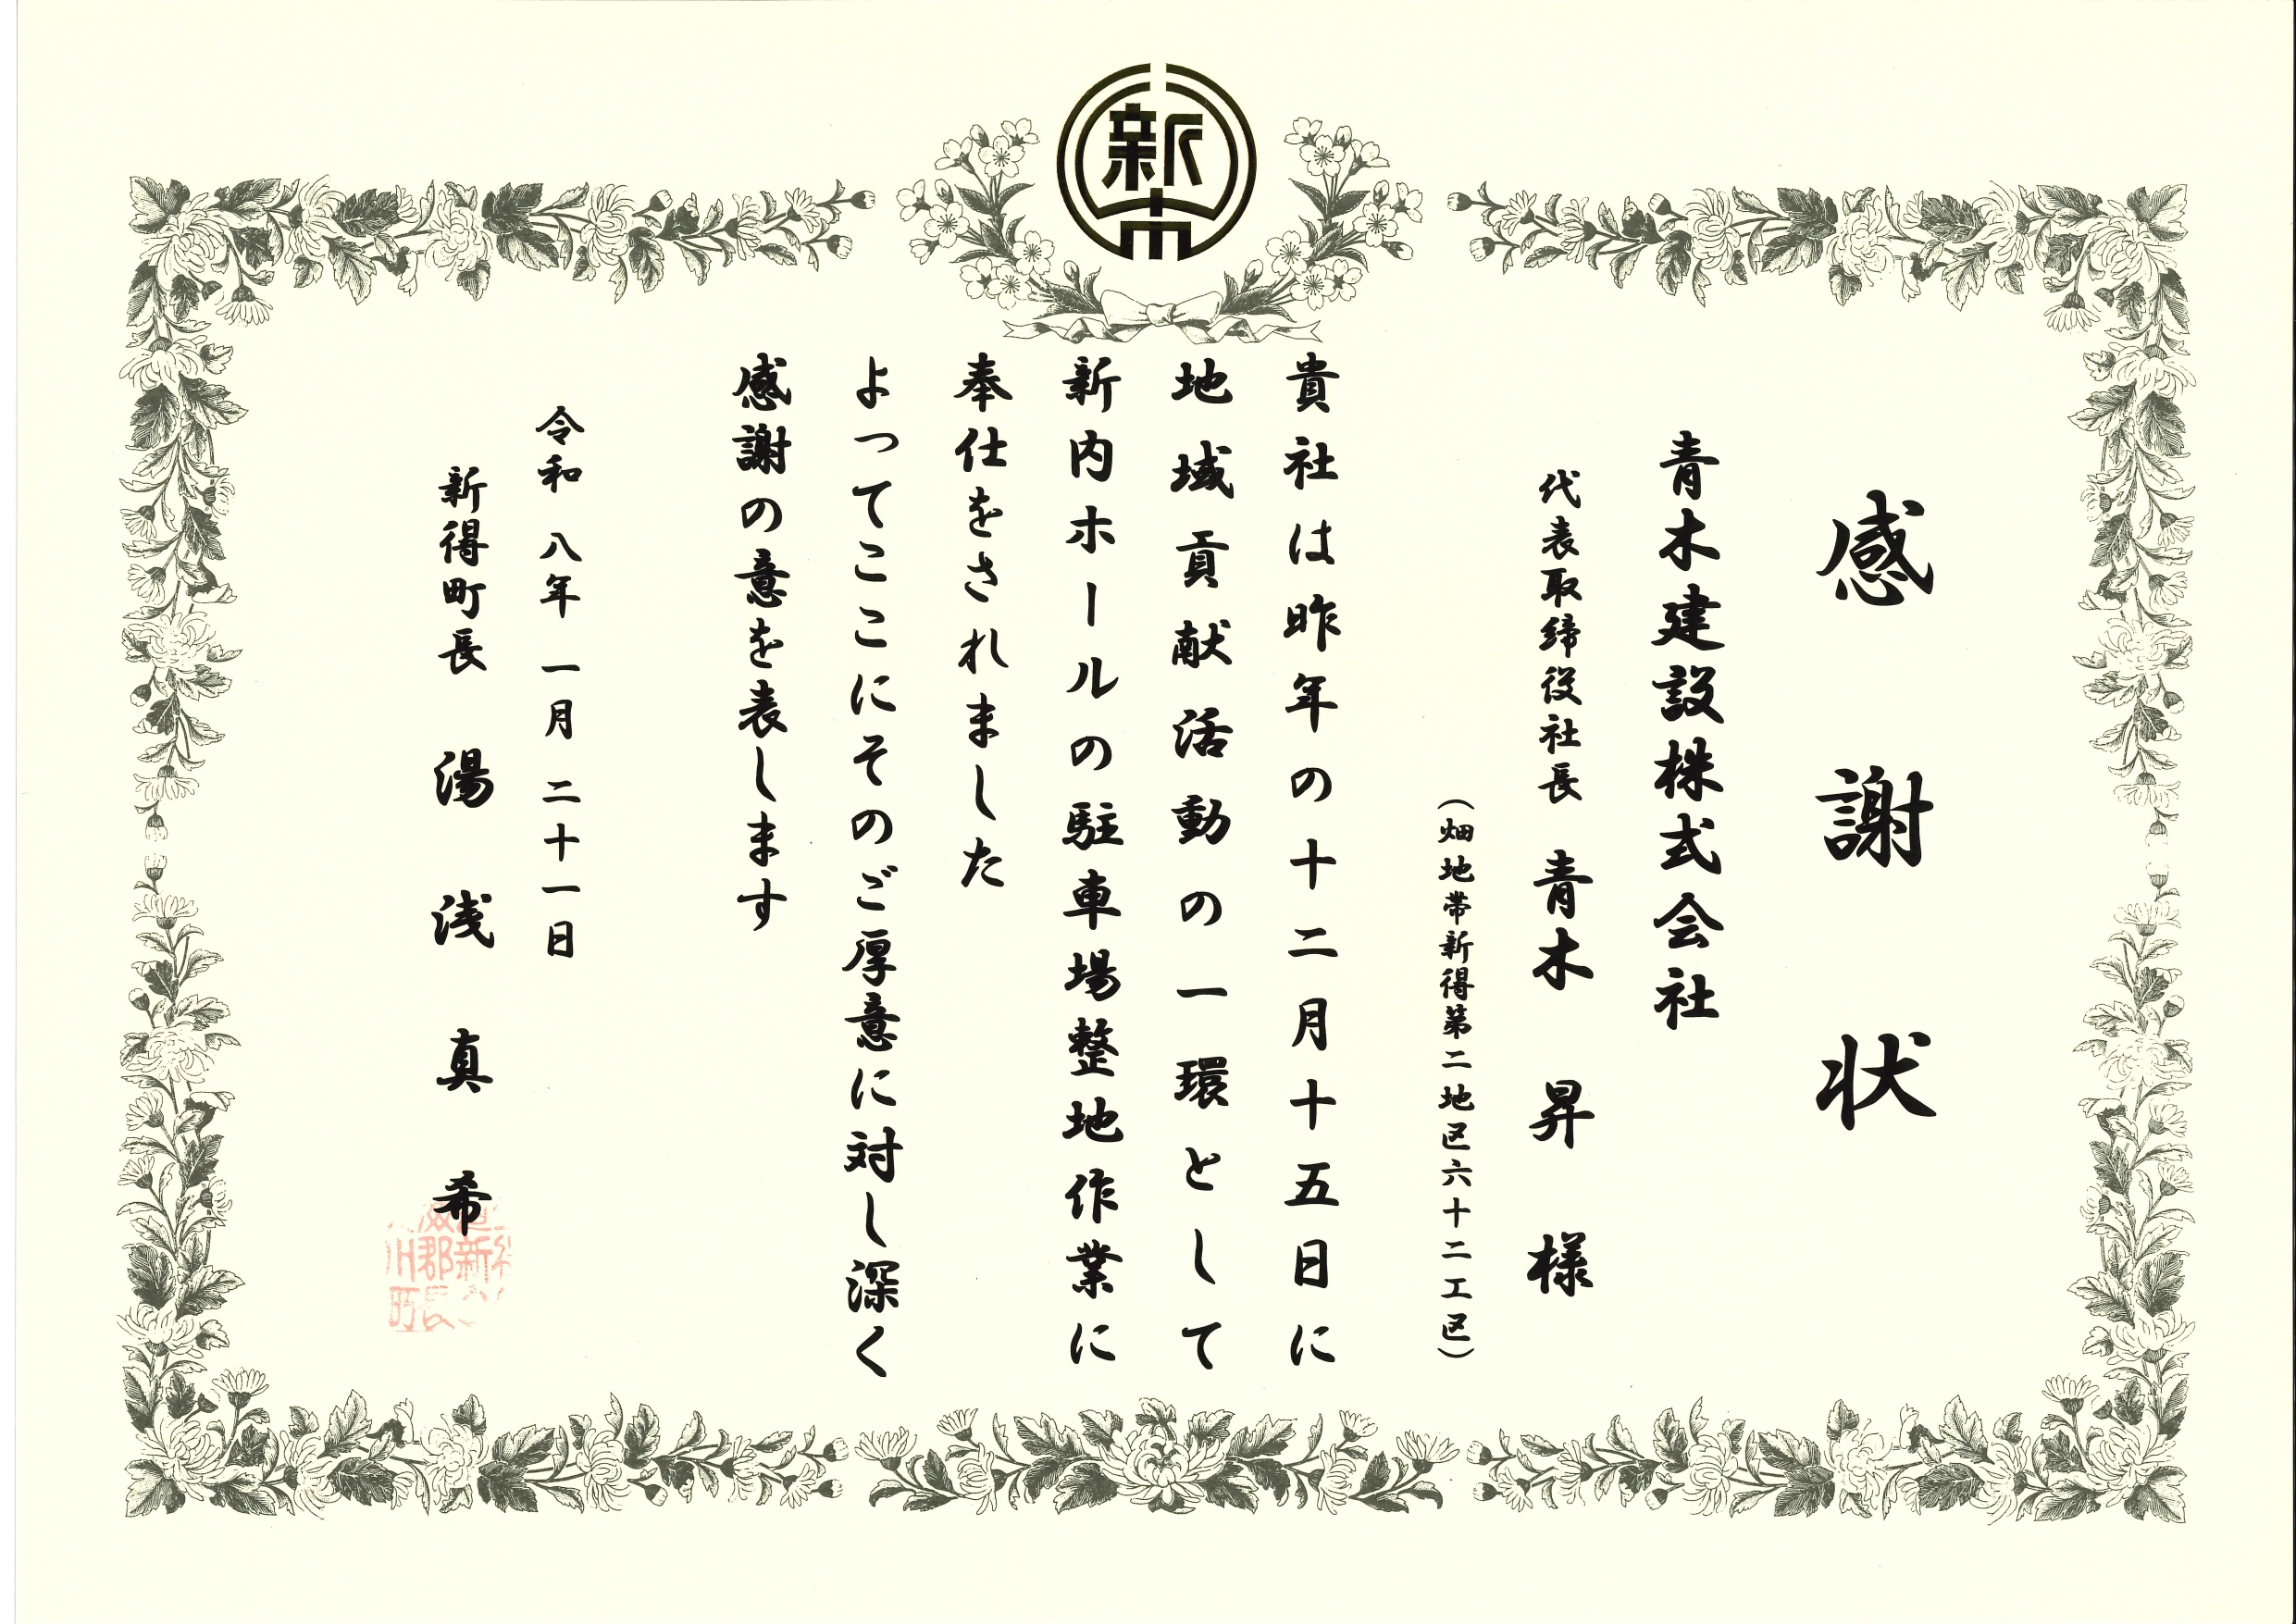 新
感謝状
青木建設株式会社
代表取締役社長 青木 昇 様
（畑地帯新得第二地区六十二工区）
貴社は昨年の十二月十五日に
地域貢献活動の一環として
新内ホールの駐車場整地作業に
奉仕をされました
よってここにそのご厚意に対し深く
感謝の意を表します
令和 八年 一月 二十一日
新得町長 湯浅真希